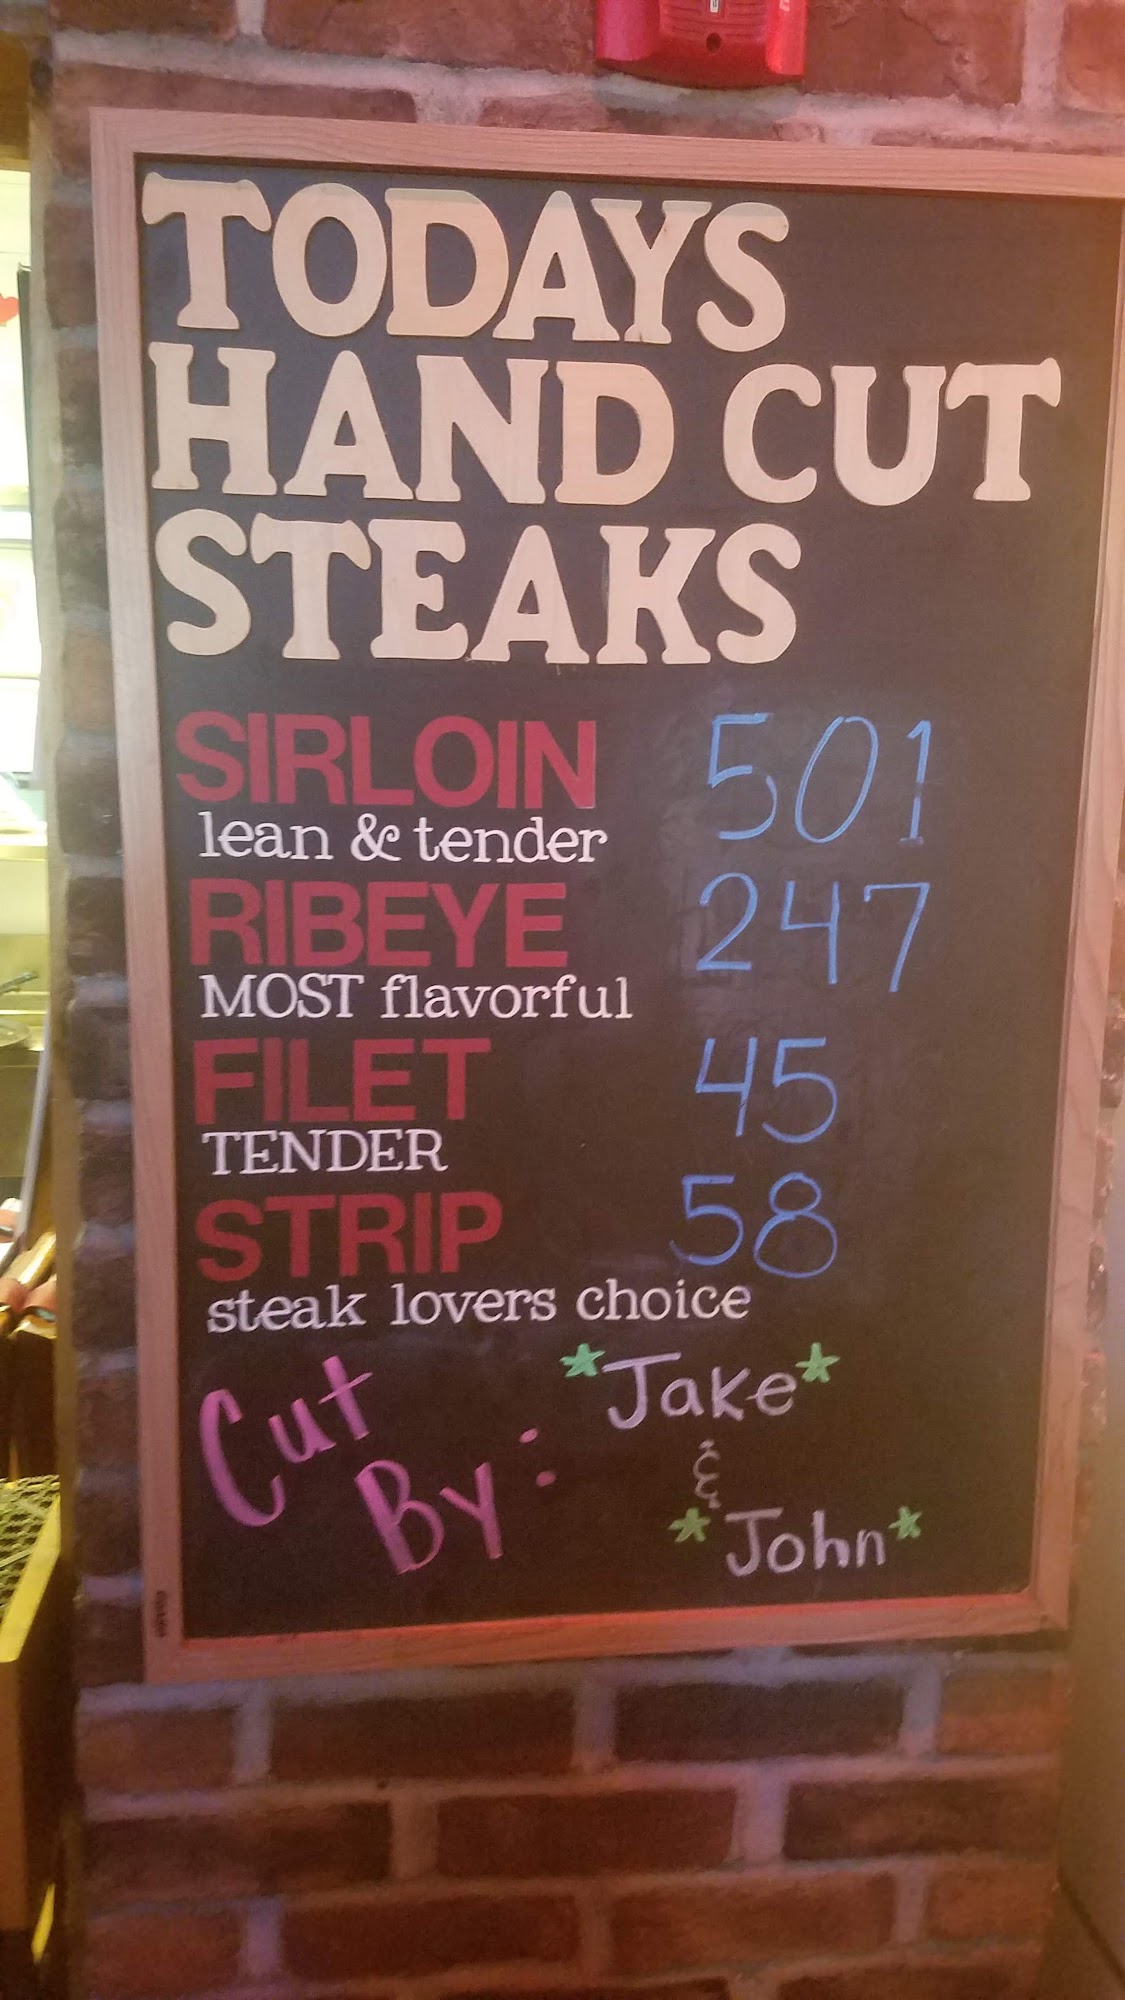 TODAYS
HAND CUT
STEAKS
SIRLOIN 501
lean & tender
RIBEYE 247
MOST flavorful
FILET 45
TENDER
STRIP 58
steak lovers choice
Cut By: *Jake*
&
*John*